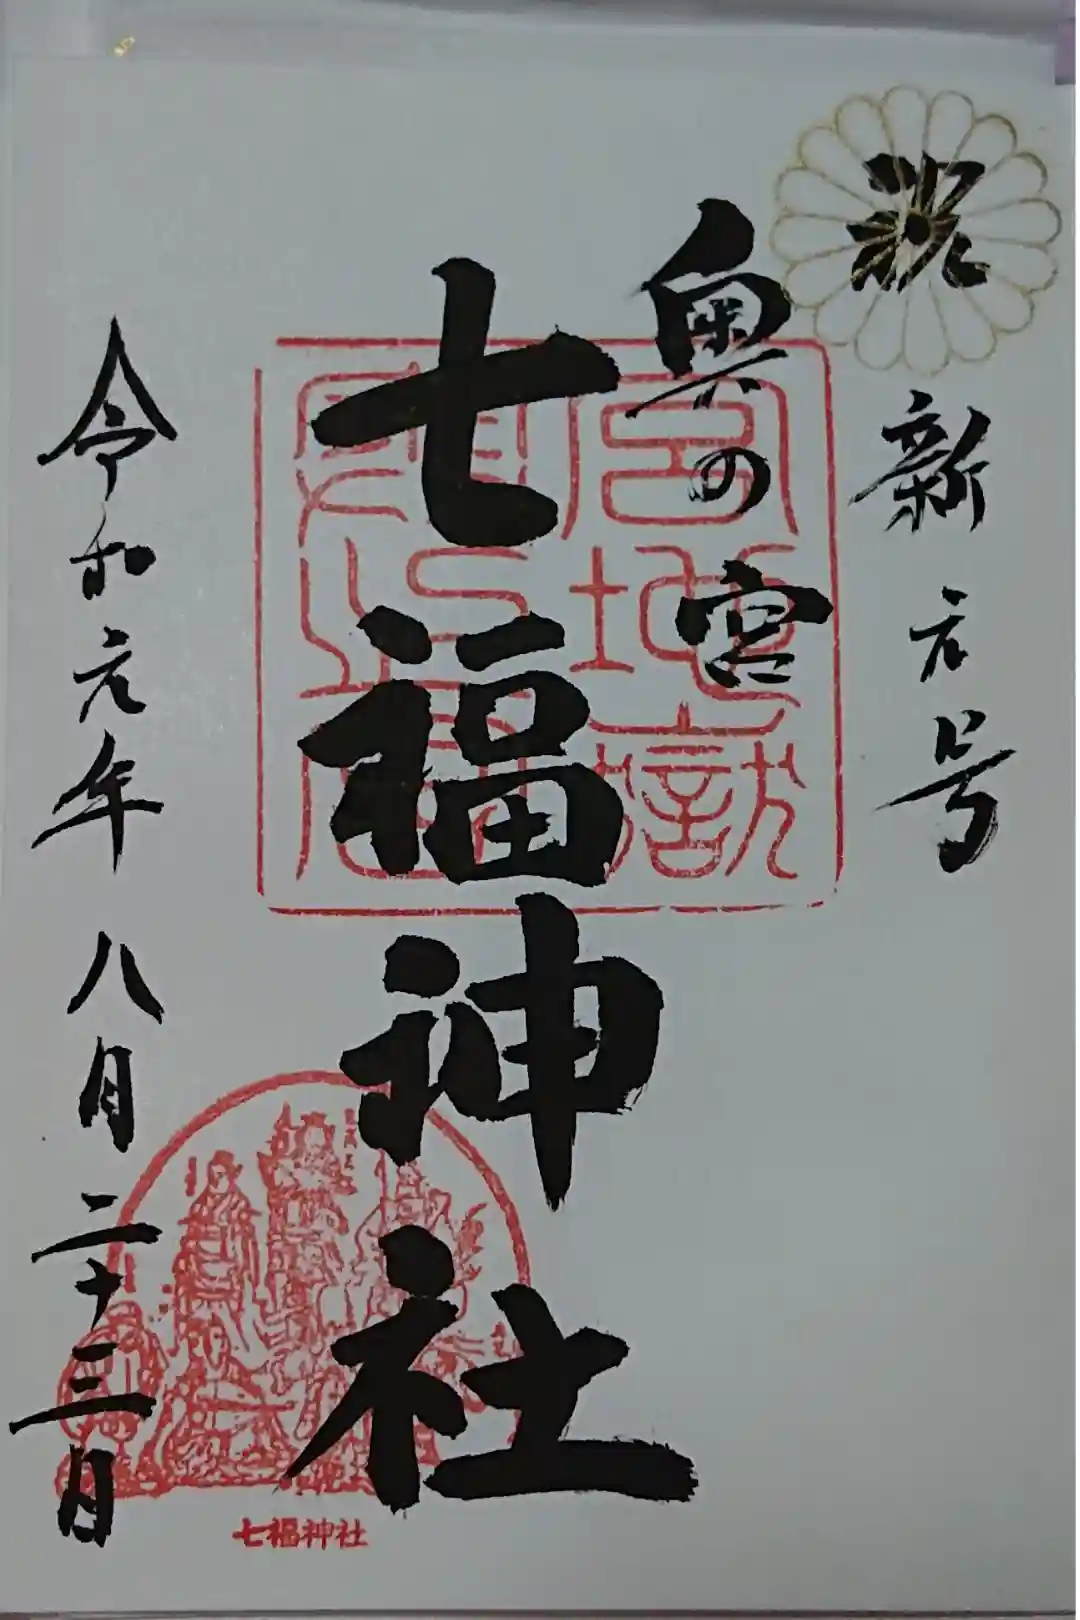 祝
新元号
奥の宮
七福神社
令和元年八月二十三日
七福神社